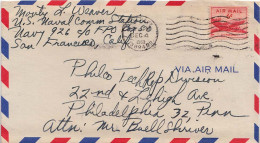 Monty L. Weaver
U.S. Naval Comm Station
Navy 926 c/o FPO
San Francisco, Calif.
DEC
VIA AIR MAIL
Philco TechRep Division
22nd & Lehigh Ave
Philadelphia 32, Penn
Attn: Mr. Buell Shriver